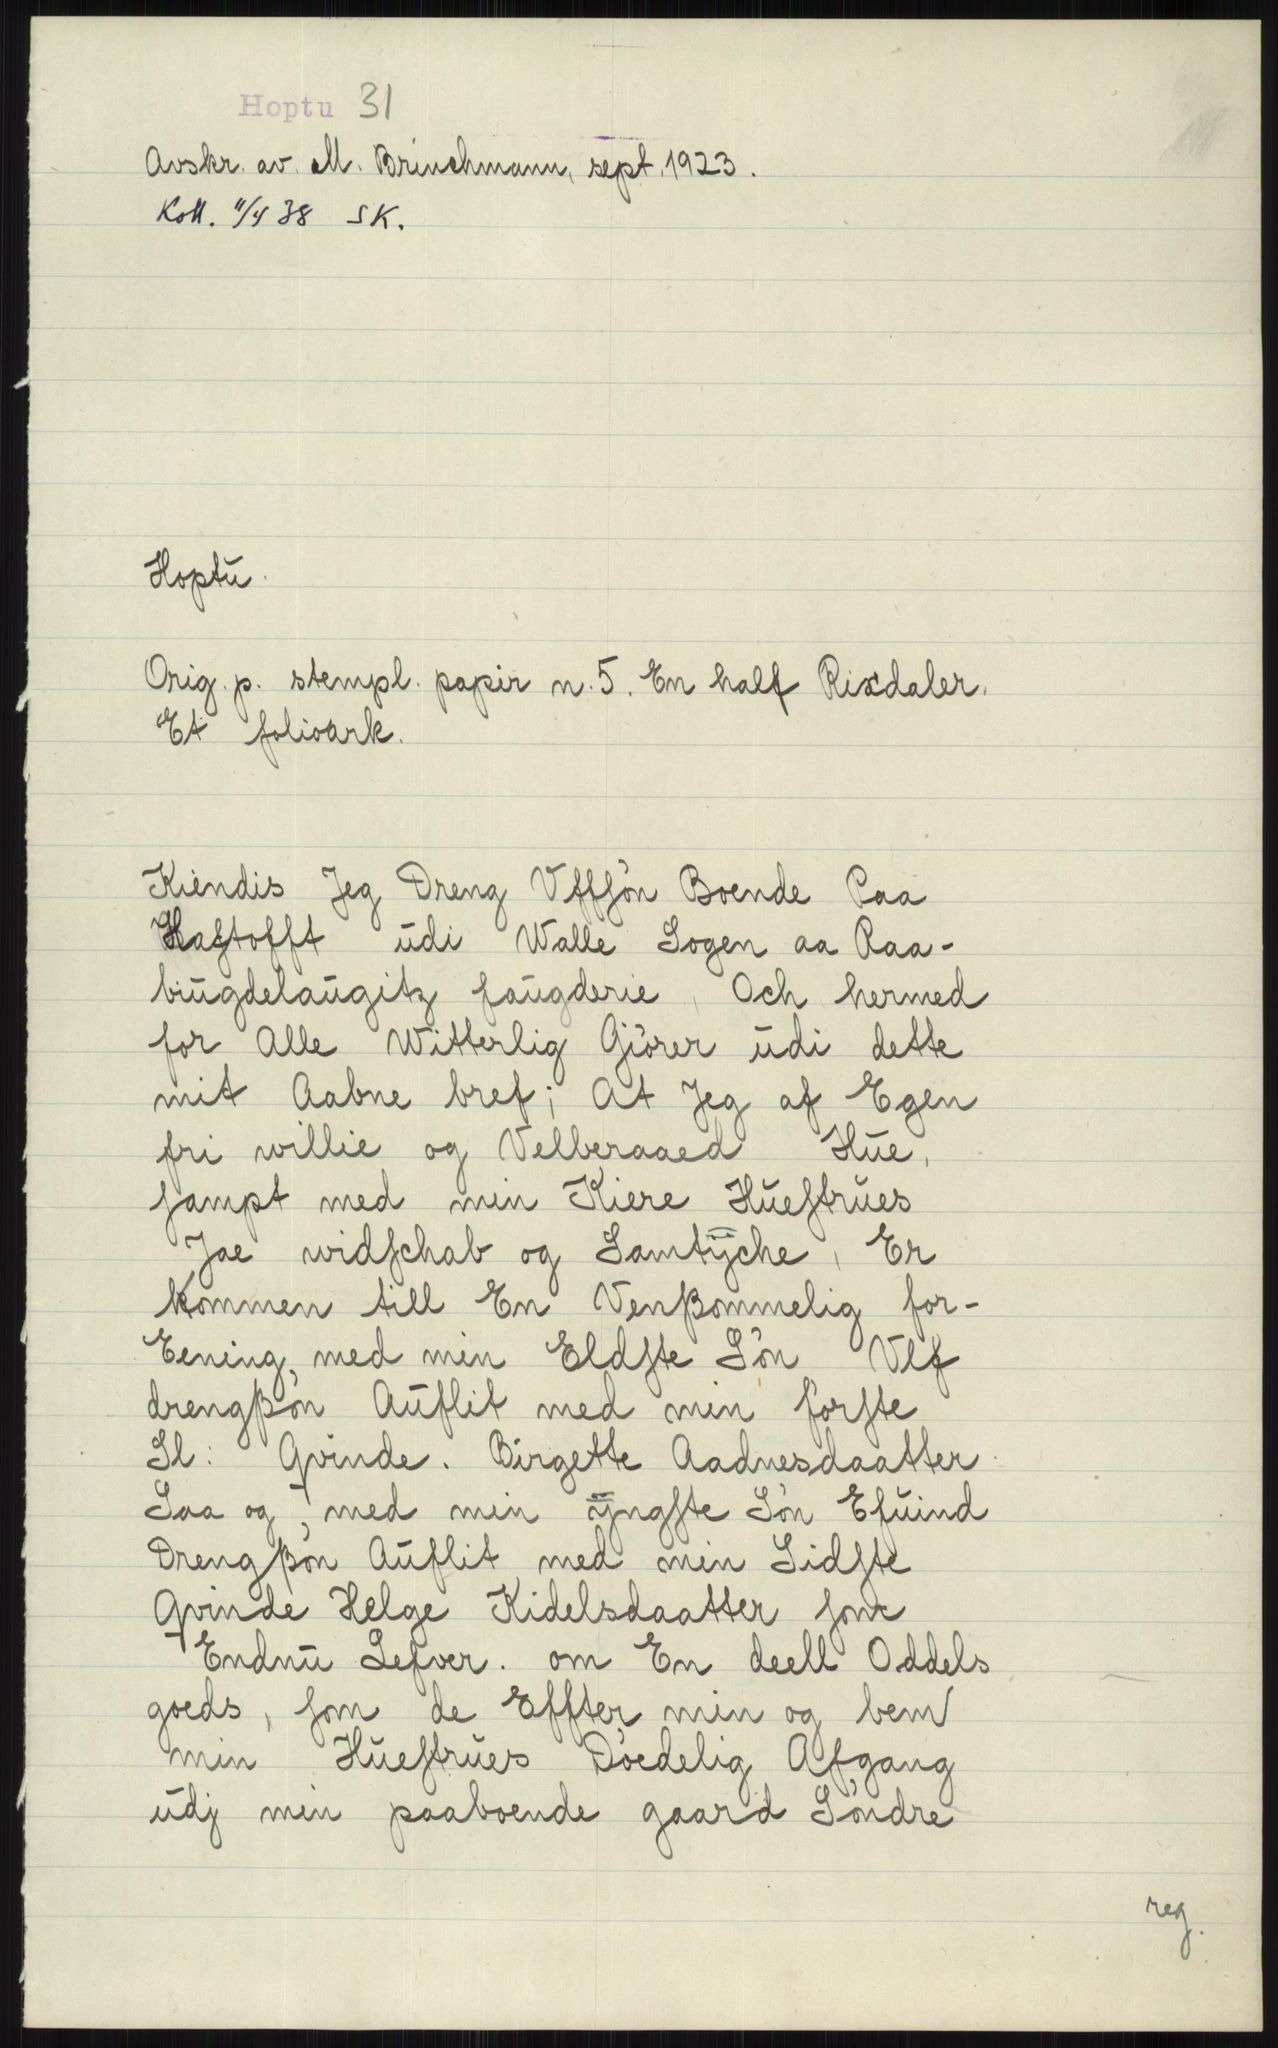 Hoptu 31
Avskr. av. M. Brinchmann, sept. 1923.
Koll. 11/4 38 SK.
Hoptu.
Orig. p. stempl. papir n. 5. En half Rixdaler.
Et folioark.
Kiendis Jeg Dreng Vffsøn Boende Paa
Haftofft udi Walle Sogen aa Raa-
biugdelaugitz faugderie, Och hermed
for Alle Witterlig Giører udi dette
mit Aabne bref; At Jeg af Egen
fri willie og Velberaaed Hue,
sampt med min Kiere Huestrues
Jae widschab og Samtÿche, Er
kommen till En Venßommelig for-
Eening, med min Eldste Søn Vlf
drengßøn Auflit med min første
Sl: Qvinde. Birgette Aadnesdaatter
Saa og, med min ÿngste Søn Efuind
Drengßøn Auflit med min Sidste
Qvinde Helge Kidelsdaatter som
Endnu Lefver. om En deell Oddels
goeds, som de Effter min og bem
min Huestrues Døedelig Afgang
udj min paaboende gaard Søndre
reg.